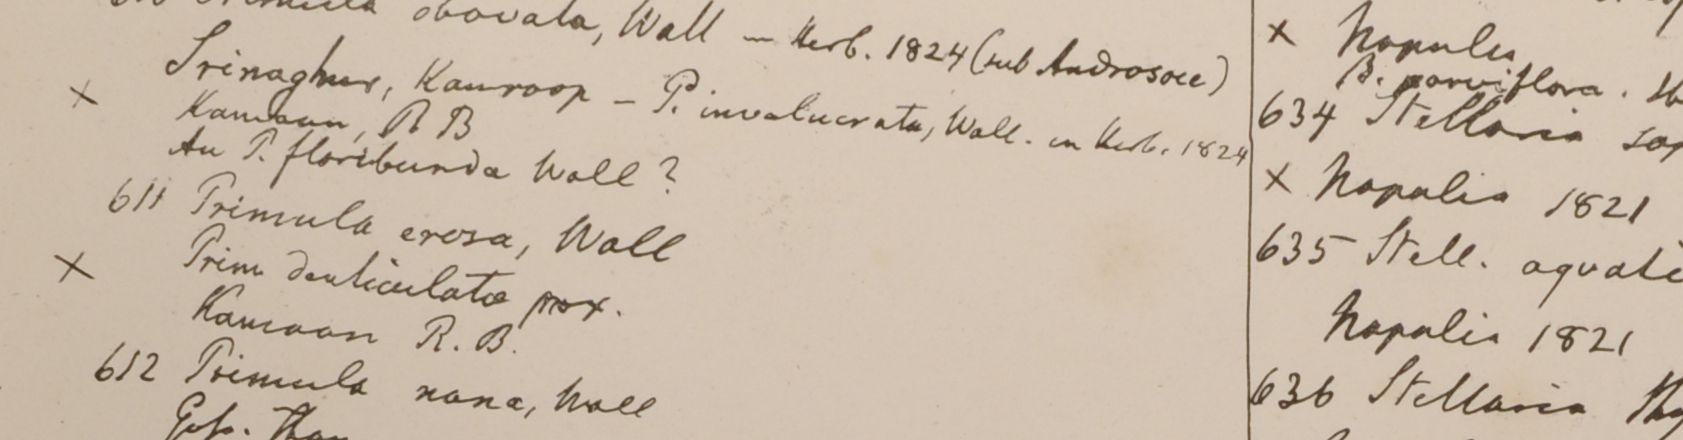 Primula obovata, Wall — Herb. 1824 (sub Androsace)
Srinaghur, Kamroop — P. involucrata, Wall. in Herb. 1824
x Kamaon, R B
An P. floribunda Wall?
611 Primula erosa, Wall
x Prim denticulatae prox.
Kamaon R. B.
612 Primula nana, Wall
x Napalia
B. parviflora.
634 Stellaria
x Napalia 1821
635 Stell. aquati
Napalia 1821
636 Stellaria